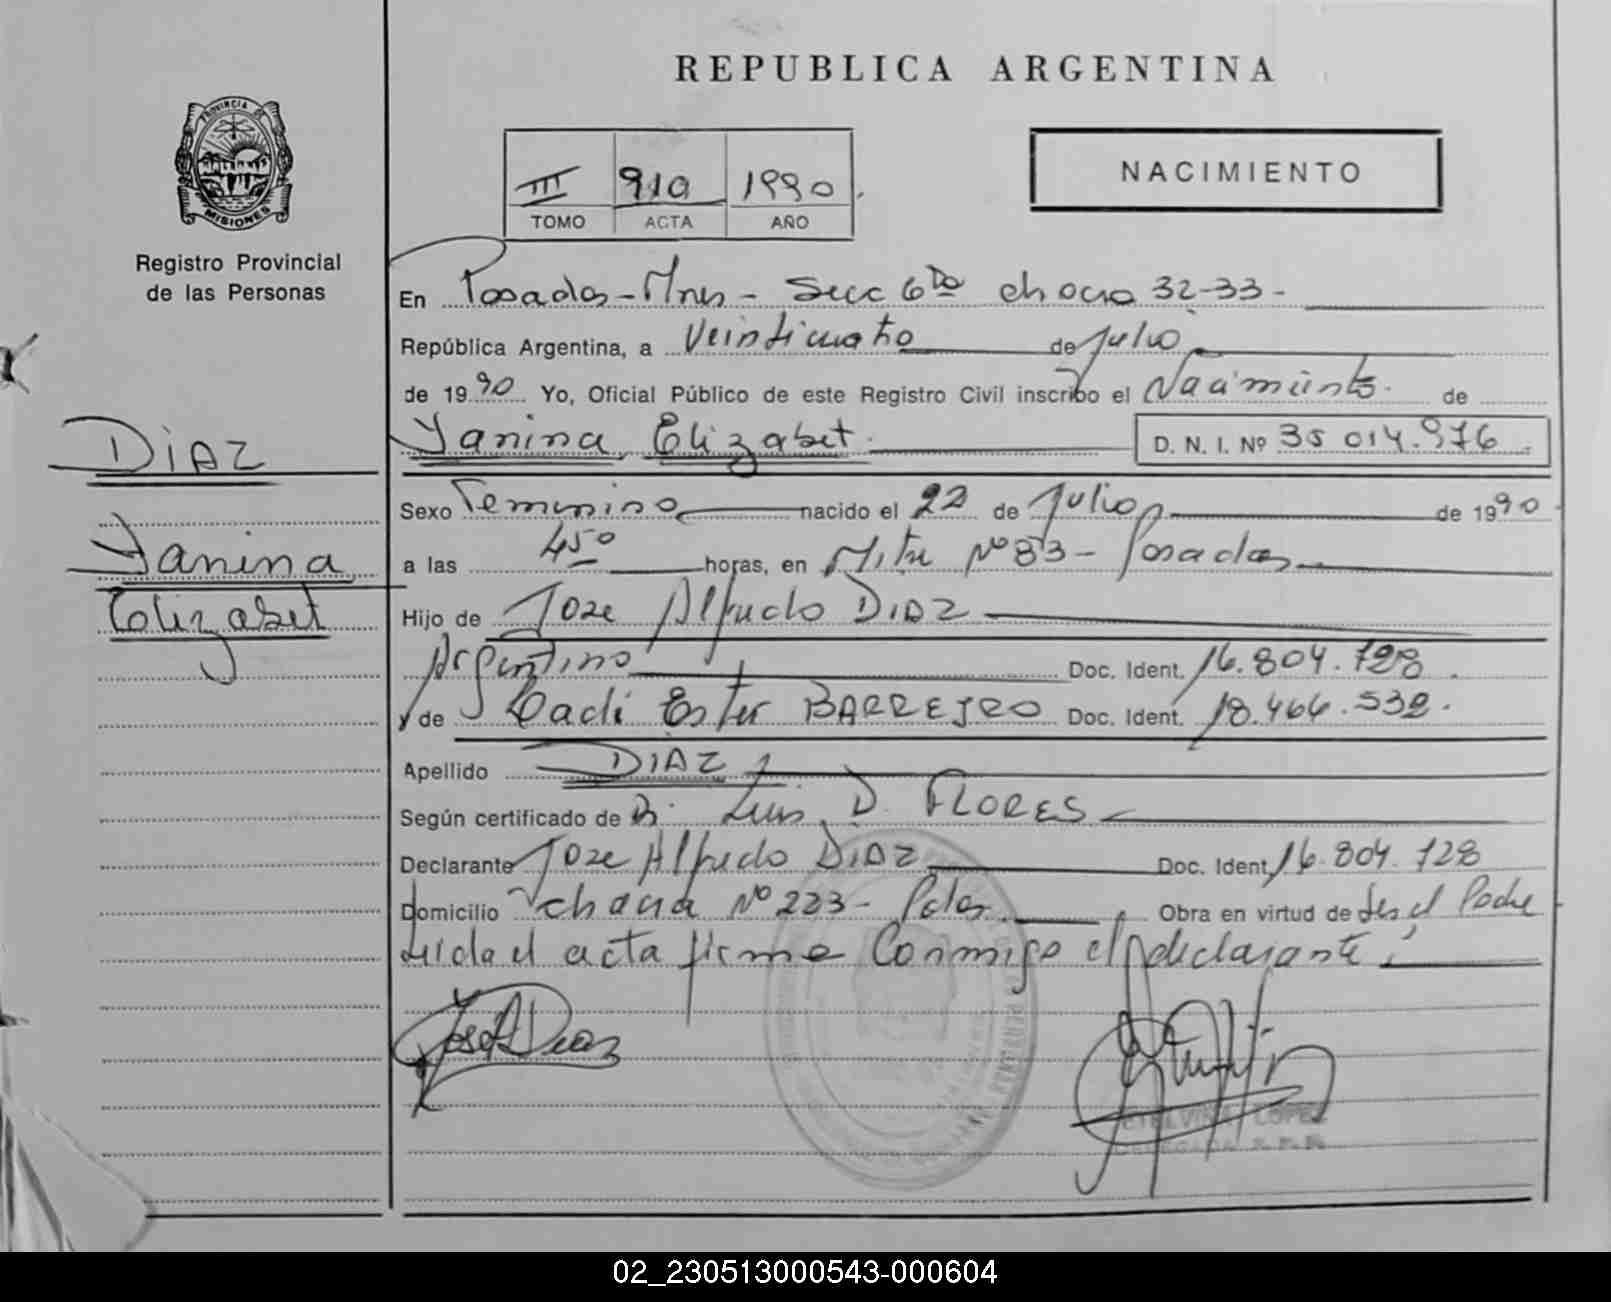 REPUBLICA ARGENTINA
PROVINCIA DE
MISIONES
Registro Provincial
de las Personas
III 910 1990
TOMO ACTA AÑO
NACIMIENTO
En Posadas - Mnes - Secc 6ta chacra 32-33 -
República Argentina, a Veinticuatro de Julio
de 1990 Yo, Oficial Público de este Registro Civil inscribo el Nacimiento de
Yanina Elizabet D. N. I. Nº 35 014.976
DIAZ
Yanina
Elizabet
Sexo Femenino nacido el 22 de Julio de 1990
a las 450 horas, en Mitre Nº 83 - Posadas
Hijo de Jose Alfredo DIAZ
Argentino Doc. Ident. 16.804.728
y de Ester BARREIRO Doc. Ident. 18.466.532
Apellido DIAZ
Según certificado de Dr. Luis D. FLORES
Declarante Jose Alfredo DIAZ Doc. Ident. 16.804.728
Domicilio chacra Nº 223 - Pdas Obra en virtud de ser el Padre
Leida el acta firma Conmigo el declarante
Jose A Diaz
ETELVINA LOPEZ
DELEGADA R.P.P.
02_230513000543-000604